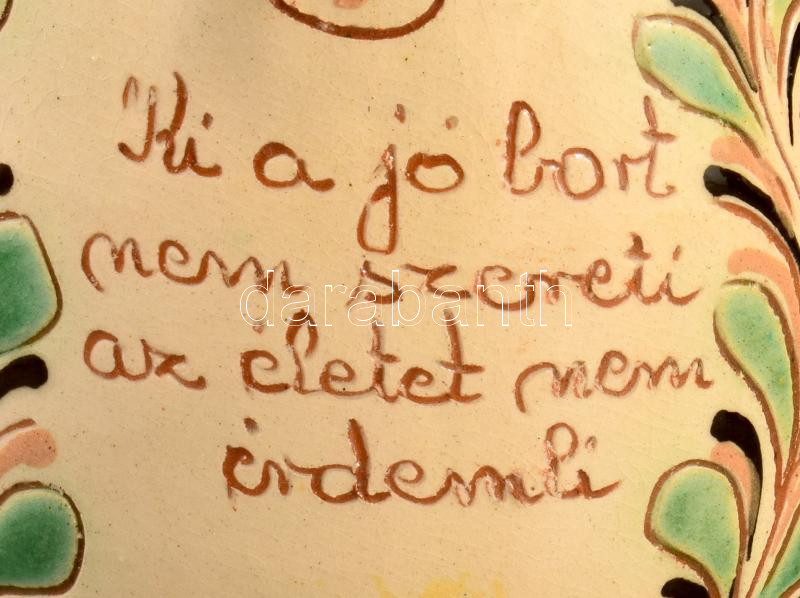 Ki a jó bort
nem szereti
darabanth
az életet nem
érdemli